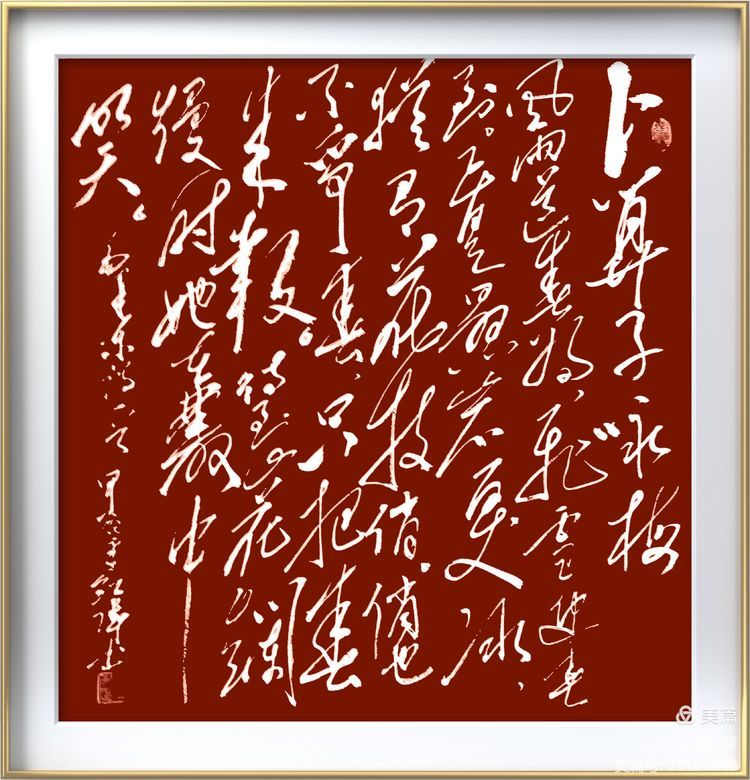 卜算子、咏梅
风雨送春归、飞雪迎春
到。已是悬崖百丈冰、
犹有花枝俏。俏也
不争春、只把春
来报。待到山花烂
漫时她在丛中
笑。
毛主席词一首
美篇